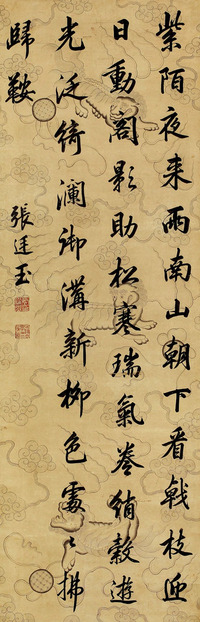 紫陌夜来雨南山朝下看戟枝迎
日動閣影助松寒瑞氣卷綃縠遊
光泛綺瀾御溝新柳色處〻拂
歸鞍
張廷玉